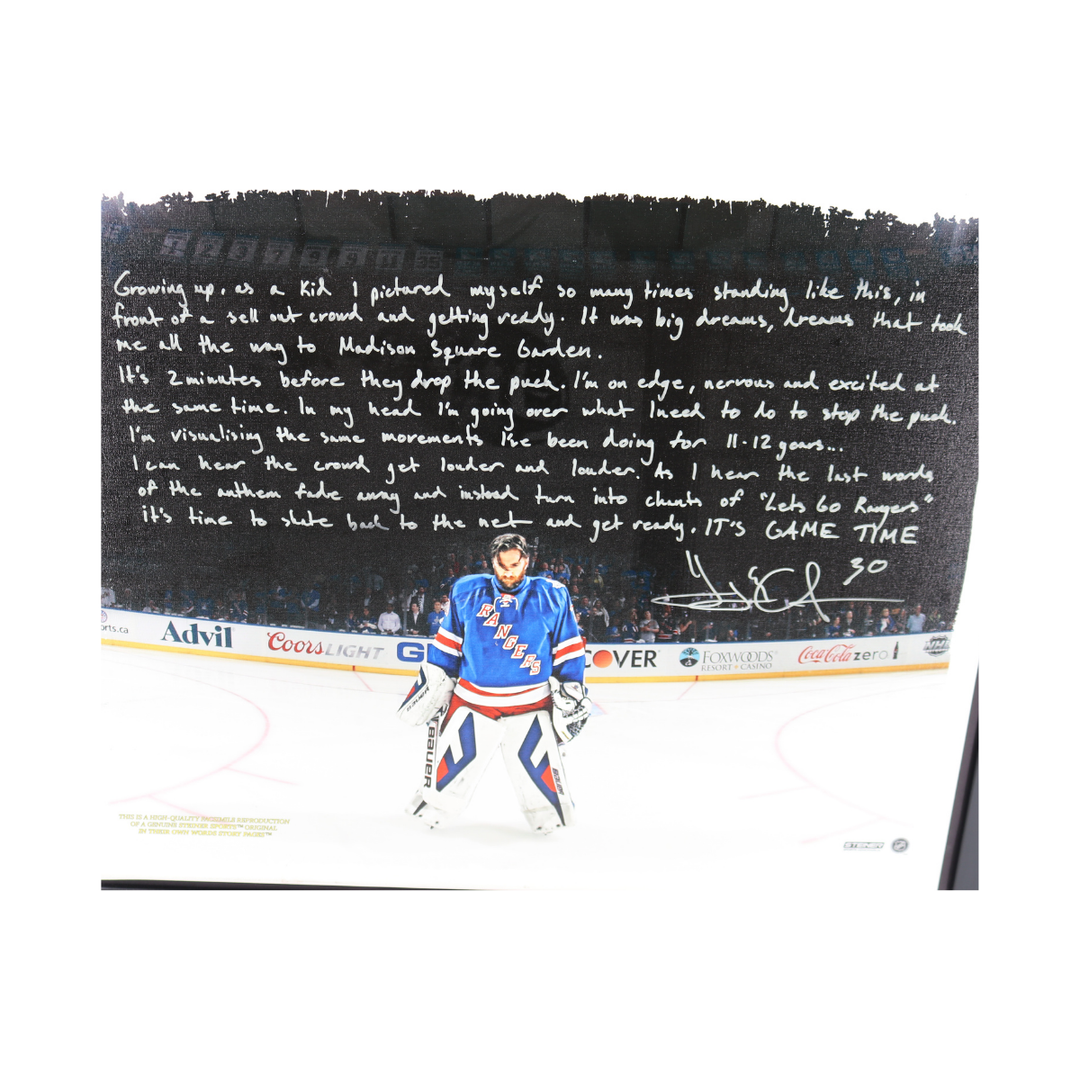 Growing up, as a kid I pictured myself so many times standing like this, in
front of a sell out crowd and getting ready. It was big dreams, dreams that took
me all the way to Madison Square Garden.
It's 2 minutes before they drop the puck. I'm on edge, nervous and excited at
the same time. In my head I'm going over what I need to do to stop the puck.
I'm visualising the same movements I've been doing for 11-12 years...
I can hear the crowd get louder and louder. As I hear the last words
of the anthem fade away and instead turn into chants of "Lets Go Rangers"
it's time to skate back to the net and get ready. IT'S GAME TIME
30
rts.ca Advil Coors LIGHT G COVER FOXWOODS RESORT • CASINO Coca-Cola zero
RANGERS
BAUER
BAUER
BAUER
THIS IS A HIGH-QUALITY FACSIMILE REPRODUCTION
OF A GENUINE STEINER SPORTS™ ORIGINAL
IN THEIR OWN WORDS STORY PAGES™
STEINER